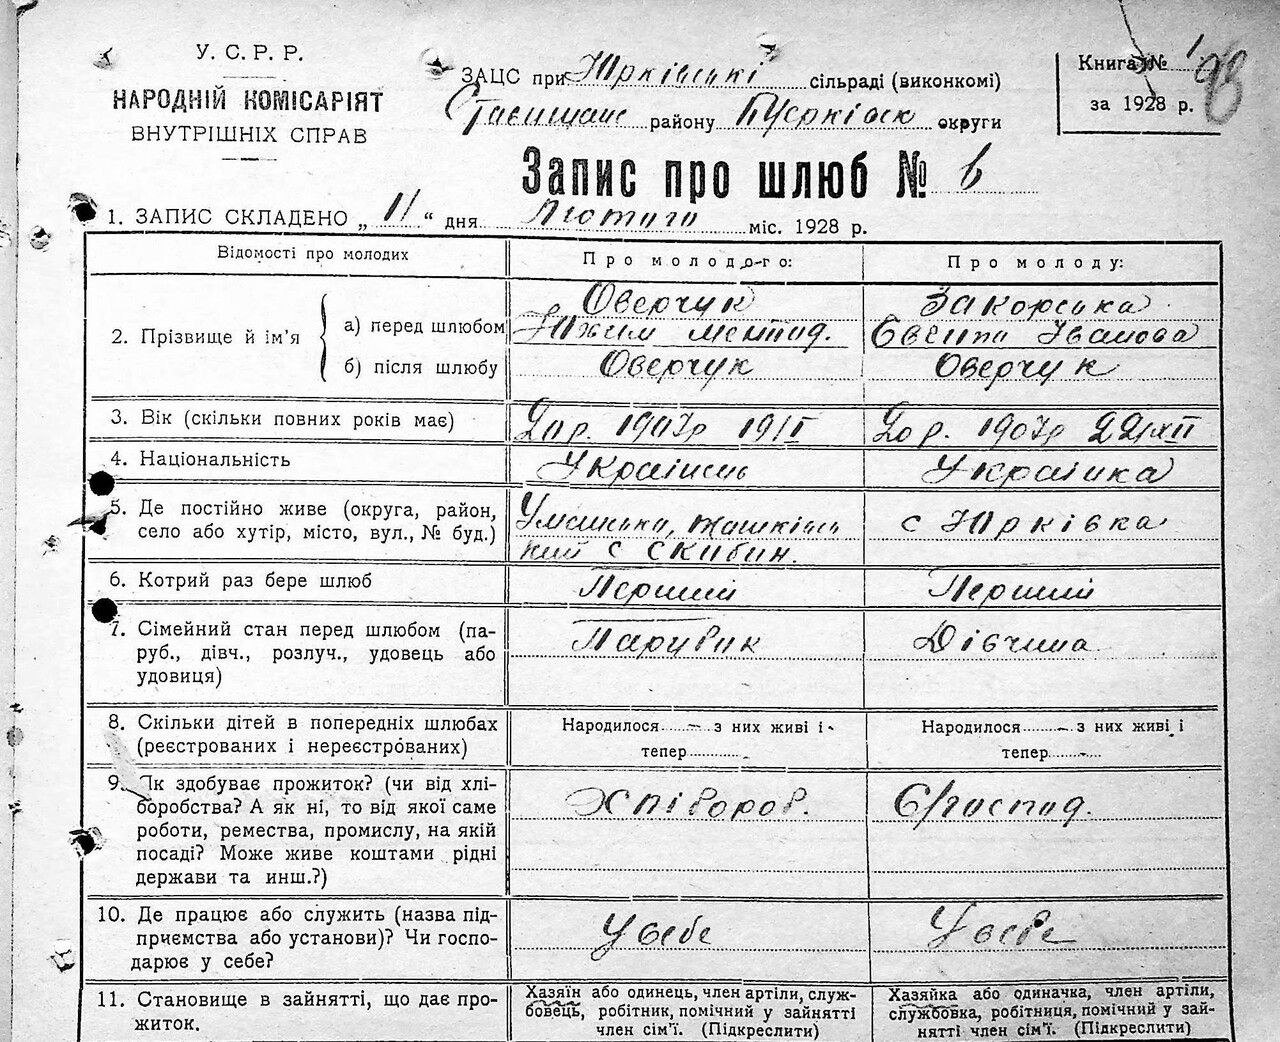 У. С. Р. Р.
НАРОДНІЙ КОМІСАРІЯТ
ВНУТРІШНІХ СПРАВ
ЗАЦС при Юрківські сільраді (виконкомі)
Ставищанс району округи
Книга №
за 1928 р.
Запис про шлюб № 6
1. ЗАПИС СКЛАДЕНО „ 11 “ дня Лютого міс. 1928 р.
Відомості про молодих
Про молодого:
Про молоду:
2. Прізвище й ім’я
а) перед шлюбом
Оверчук
Юхим
Закорська
Іванова
б) після шлюбу
Оверчук
Оверчук
3. Вік (скільки повних років має)
1907р 19/I
1907р 22/XII
4. Національність
Українець
Українка
5. Де постійно живе (округа, район,
село або хутір, місто, вул., № буд.)
Уманська, Ташківсь
кий с Скибин.
с Юрківка
6. Котрий раз бере шлюб
Перший
Перший
7. Сімейний стан перед шлюбом (па-
руб., дівч., розлуч., удовець або
удовиця)
Парубик
Дівчина
8. Скільки дітей в попередніх шлюбах
(реєстрованих і нереєстрованих)
Народилося — з них живі і
тепер
Народилося — з них живі і
тепер —
9. Як здобуває прожиток? (чи від хлі-
боробства? А як ні, то від якої саме
роботи, ремества, промислу, на якій
посаді? Може живе коштами рідні
держави та инш.?)
Хлібороб.
С/господ.
10. Де працює або служить (назва під-
приємства або установи)? Чи госпо-
дарює у себе?
У себе
У себе
11. Становище в зайнятті, що дає про-
житок.
Хазяїн або одинець, член артіли, служ-
бовець, робітник, помічний у зайнятті
член сім’ї. (Підкреслити)
Хазяйка або одиначка, член артіли,
службовка, робітниця, помічний у зай-
нятті член сім’ї. (Підкреслити)